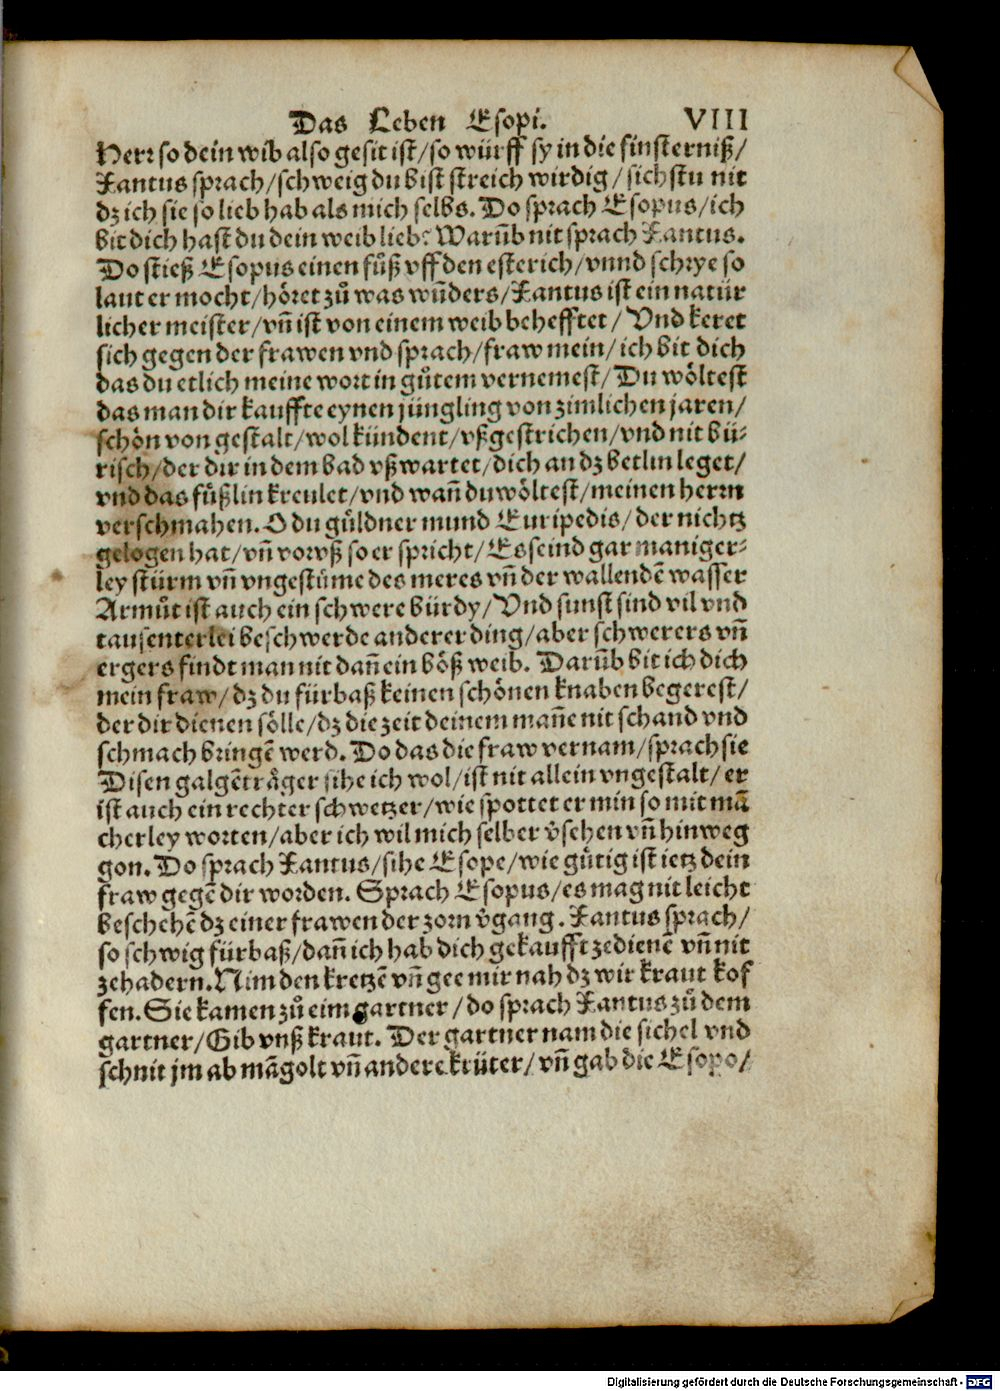 Das Leben Esopi. VIII
Herr so dein wib also gesit ist/so würff sy in die finsterniß/
Xantus sprach/schweig du bist streich wirdig/sichstu nit
dz ich sie so lieb hab als mich selbs. Do sprach Esopus/ich
bit dich hast du dein weib lieb? Warūb nit sprach Xantus.
Do stieß Esopus einen fůß vff den esterich/vnnd schrye so
laut er mocht/höret zů was wūders/Xantus ist ein natür
licher meister/vñ ist von einem weib behefftet/Vnd keret
sich gegen der frawen vnd sprach/fraw mein/ich bit dich
das du etlich meine wort in gůtem vernemest/Du wöltest
das man dir kauffte eynen jüngling von zimlichen jaren/
schön von gestalt/wol kündent/vßgestrichen/vnd nit bü⸗
risch/der dir in dem bad vßwartet/dich an dz betlin leget/
vnd das füßlin kreulet/vnd wañ du wöltest/meinen herrn
verschmahen. O du gůldner mund Euripedis/der nichtz
gelogen hat/vñ vorvß so er spricht/Es seind gar maniger⸗
ley stürm vñ vngestüme des meres vñ der wallendē wasser
Armůt ist auch ein schwere bürdy/Vnd sunst sind vil vnd
tausenterlei beschwerde anderer ding/aber schwerers vñ
ergers findt man nit dañ ein böß weib. Darūb bit ich dich
mein fraw/dz du fürbaß keinen schönen knaben begerest/
der dir dienen sölle/dz die zeit deinem mañe nit schand vnd
schmach bringē werd. Do das die fraw vernam/sprach sie
Disen galgēträger sihe ich wol/ist nit allein vngestalt/er
ist auch ein rechter schwetzer/wie spottet er min so mit mā
cherley worten/aber ich wil mich selber v̄sehen vñ hinweg
gon. Do sprach Xantus/sihe Esope/wie gütig ist ietz dein
fraw gegē dir worden. Sprach Esopus/es mag nit leicht
beschehē dz einer frawen der zorn v̄gang. Xantus sprach/
so schwig fürbaß/dañ ich hab dich gekaufft zedienē vñ nit
zehadern. Nim den kretzē vñ gee mir nah dz wir kraut kof
fen. Sie kamen zů eim gartner/do sprach Xantus zů dem
gartner/Gib vnß kraut. Der gartner nam die sichel vnd
schnit jm ab māgolt vñ andere krüter/vñ gab die Esopo/
Digitalisierung gefördert durch die Deutsche Forschungsgemeinschaft - DFG